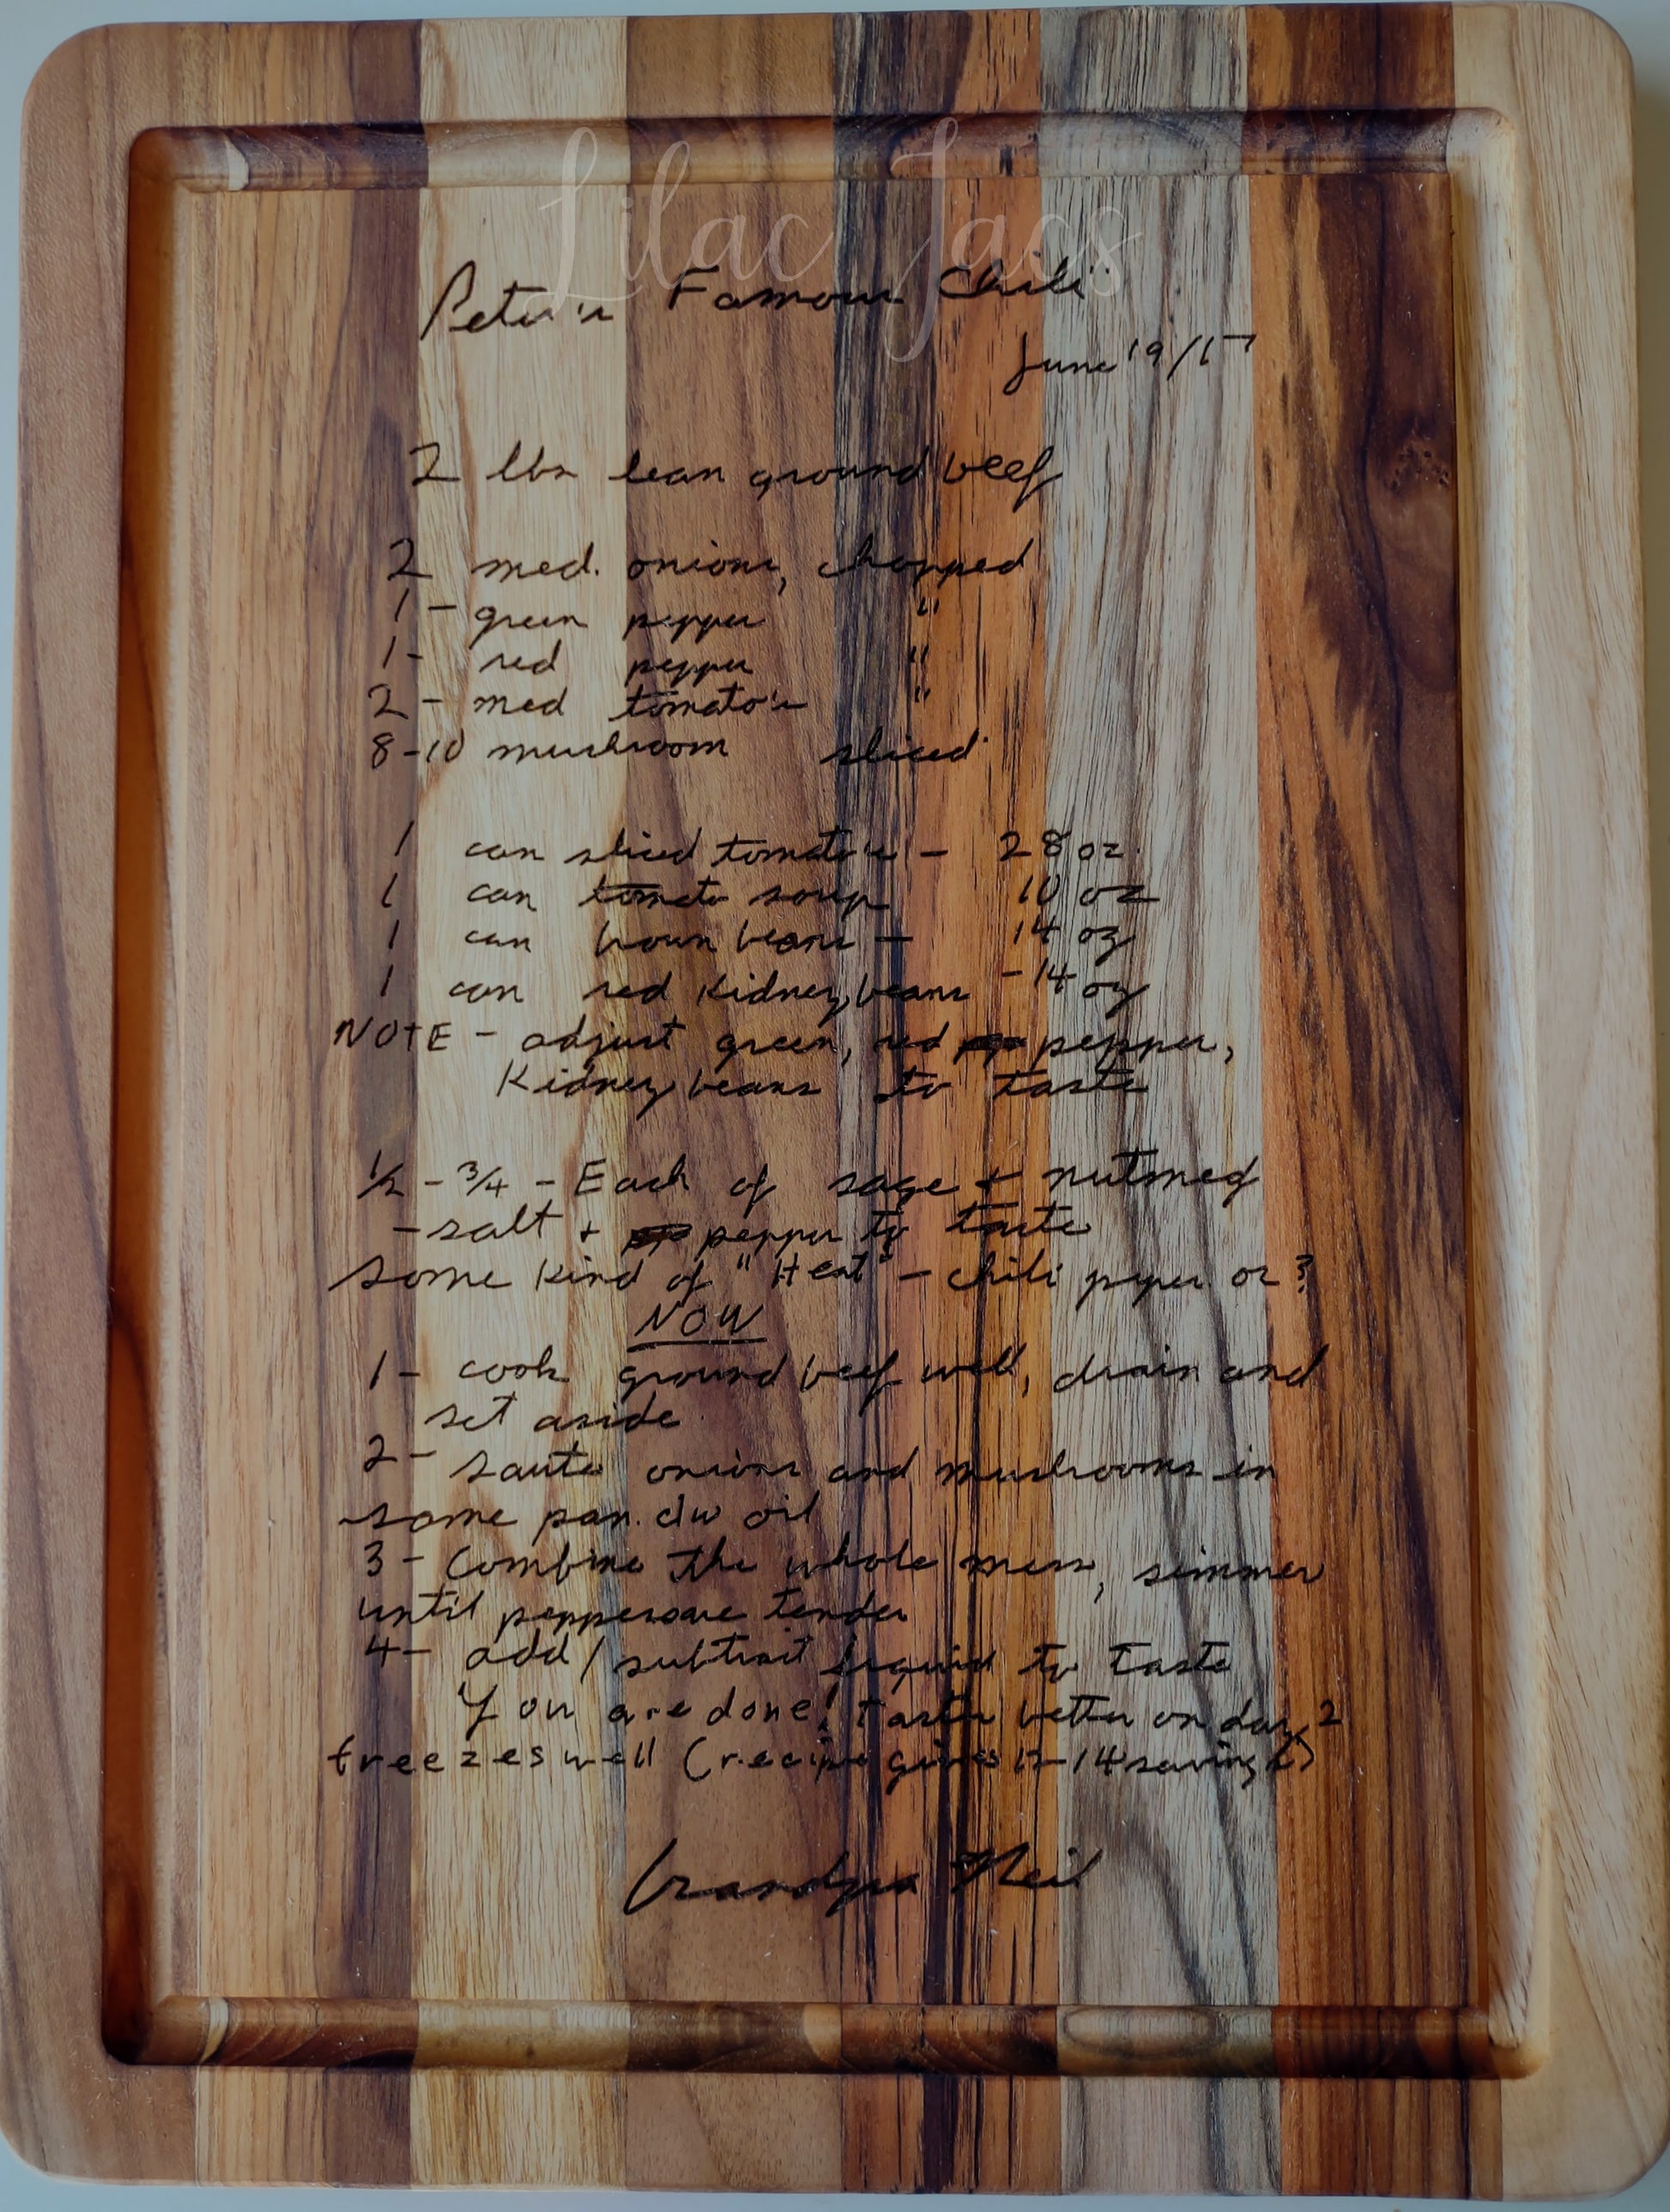 Lilac Jacs
Peter's Famous Chili
June 19/17
2 lbs lean ground beef
2 med. onions, chopped
1 - green pepper "
1 - red pepper "
2 - med tomato's "
8-10 mushroom sliced
1 can sliced tomato's - 28 oz
1 can tomato soup 10 oz
1 can brown beans - 14 oz
1 can red kidney beans - 14 oz
NOTE - adjust green, red pepper,
Kidney beans to taste
1/2 - 3/4 - Each of sage + nutmeg
- salt + pepper to taste
some kind of "Heat" - chili pepper or?
NOW
1 - cook ground beef well, drain and
set aside
2 - saute onions and mushrooms in
same pan. oil
3 - Combine the whole mess, simmer
until peppers are tender
4 - add/subtract liquid to taste
You are done! taste better on day 2
freezes well (recipe gives 12-14 servings)
Grandpa Neil